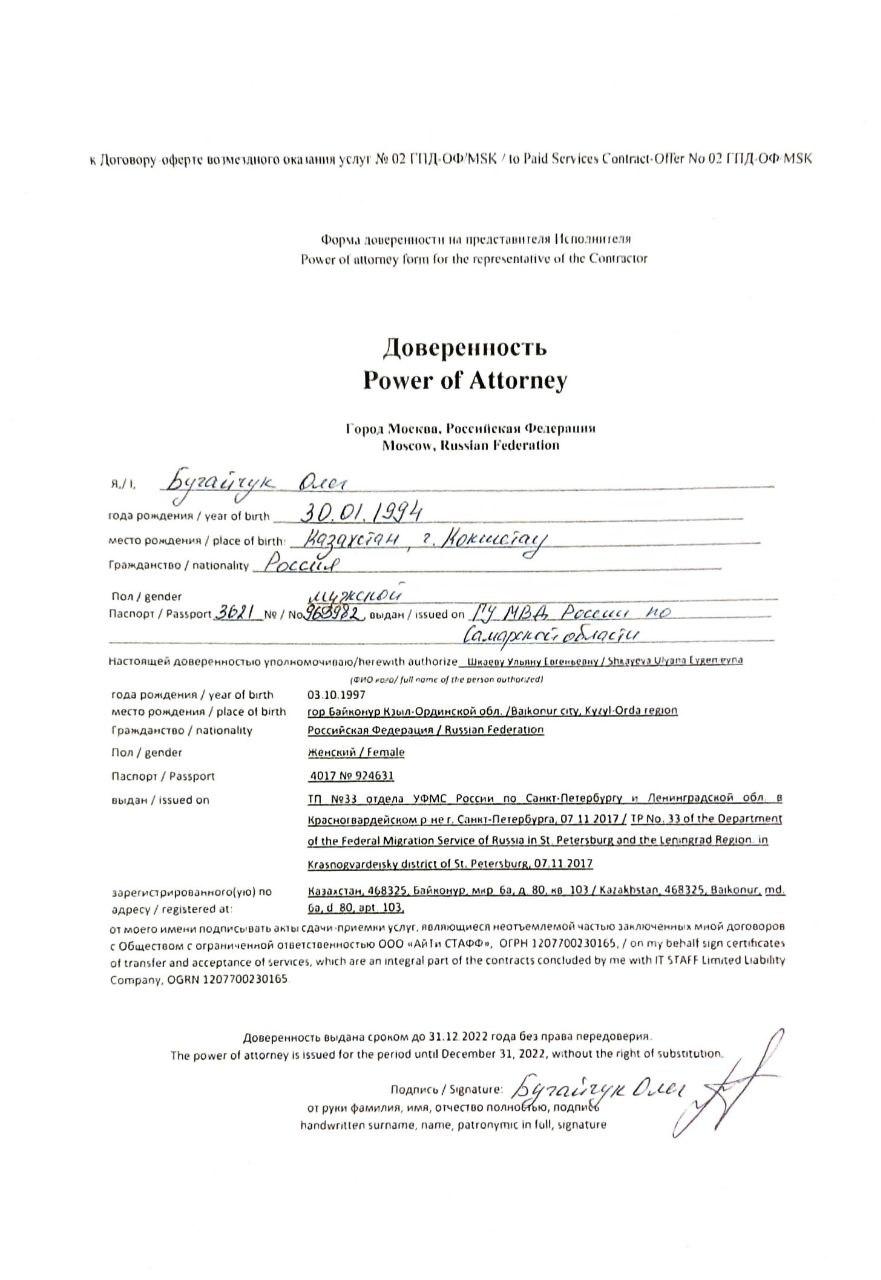 к Договору-оферте возмездного оказания услуг № 02 ГПД-ОФ/MSK / to Paid Services Contract-Offer No 02 ГПД-ОФ/MSK
Форма доверенности на представителя Исполнителя
Power of attorney form for the representative of the Contractor
Доверенность
Power of Attorney
Город Москва, Российская Федерация
Moscow, Russian Federation
Я,/ I, Бугайчук Олег
года рождения / year of birth 30.01.1994
место рождения / place of birth: Казахстан, г. Кокшетау
Гражданство / nationality Россия
Пол / gender мужской
Паспорт / Passport 3621 № / No 969982, выдан / issued on ГУ МВД России по
Самарской области
Настоящей доверенностью уполномочиваю/herewith authorize Шкаеву Ульяну Евгеньевну / Shkayeva Ulyana Evgenievna
(ФИО кого/ full name of the person authorized)
года рождения / year of birth 03.10.1997
место рождения / place of birth гор Байконур Кзыл-Ординской обл. /Baikonur city, Kyzyl-Orda region
Гражданство / nationality Российская Федерация / Russian Federation
Пол / gender Женский / Female
Паспорт / Passport 4017 № 924631
выдан / issued on ТП №33 отдела УФМС России по Санкт-Петербургу и Ленинградской обл. в
Красногвардейском р-не г. Санкт-Петербурга, 07.11.2017 / TP No. 33 of the Department
of the Federal Migration Service of Russia in St. Petersburg and the Leningrad Region. in
Krasnogvardeisky district of St. Petersburg, 07.11.2017
зарегистрированного(ую) по Казахстан, 468325, Байконур, мкр 6а, д. 80, кв. 103 / Kazakhstan, 468325, Baikonur, md.
адресу / registered at: 6a, d. 80, apt. 103,
от моего имени подписывать акты сдачи-приемки услуг, являющиеся неотъемлемой частью заключенных мной договоров
с Обществом с ограниченной ответственностью ООО «АйТи СТАФФ», ОГРН 1207700230165, / on my behalf sign certificates
of transfer and acceptance of services, which are an integral part of the contracts concluded by me with IT STAFF Limited Liability
Company, OGRN 1207700230165.
Доверенность выдана сроком до 31.12.2022 года без права передоверия.
The power of attorney is issued for the period until December 31, 2022, without the right of substitution.
Подпись / Signature: Бугайчук Олег
от руки фамилия, имя, отчество полностью, подпись
handwritten surname, name, patronymic in full, signature